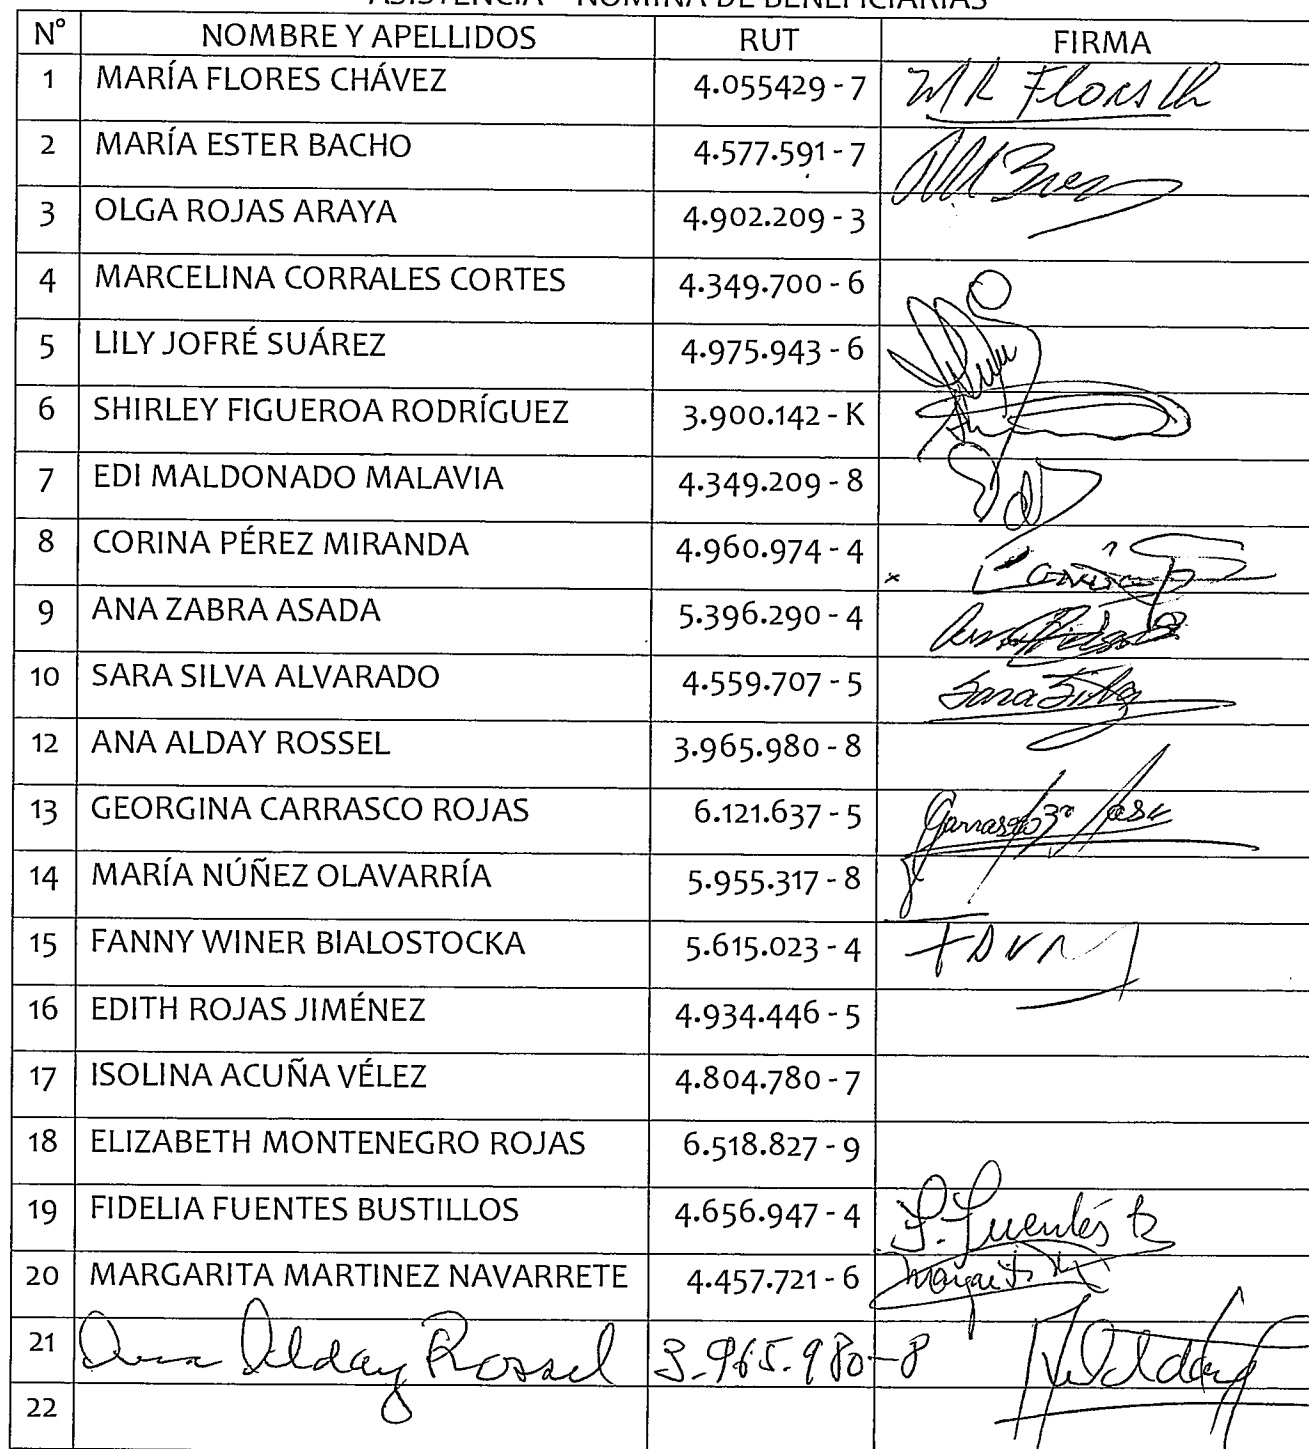 ASISTENCIA – NOMINA DE BENEFICIARIAS
N° NOMBRE Y APELLIDOS RUT FIRMA
1 MARÍA FLORES CHÁVEZ 4.055429 - 7 Flores Ch
2 MARÍA ESTER BACHO 4.577.591 - 7
3 OLGA ROJAS ARAYA 4.902.209 - 3
4 MARCELINA CORRALES CORTES 4.349.700 - 6
5 LILY JOFRÉ SUÁREZ 4.975.943 - 6
6 SHIRLEY FIGUEROA RODRÍGUEZ 3.900.142 - K
7 EDI MALDONADO MALAVIA 4.349.209 - 8
8 CORINA PÉREZ MIRANDA 4.960.974 - 4 x
9 ANA ZABRA ASADA 5.396.290 - 4
10 SARA SILVA ALVARADO 4.559.707 - 5 Sara Silva
12 ANA ALDAY ROSSEL 3.965.980 - 8
13 GEORGINA CARRASCO ROJAS 6.121.637 - 5
14 MARÍA NÚÑEZ OLAVARRÍA 5.955.317 - 8
15 FANNY WINER BIALOSTOCKA 5.615.023 - 4
16 EDITH ROJAS JIMÉNEZ 4.934.446 - 5
17 ISOLINA ACUÑA VÉLEZ 4.804.780 - 7
18 ELIZABETH MONTENEGRO ROJAS 6.518.827 - 9
19 FIDELIA FUENTES BUSTILLOS 4.656.947 - 4 F. Fuentés B
20 MARGARITA MARTINEZ NAVARRETE 4.457.721 - 6 Margarita M
21 Ana Alday Rossel 3.965.980-8
22